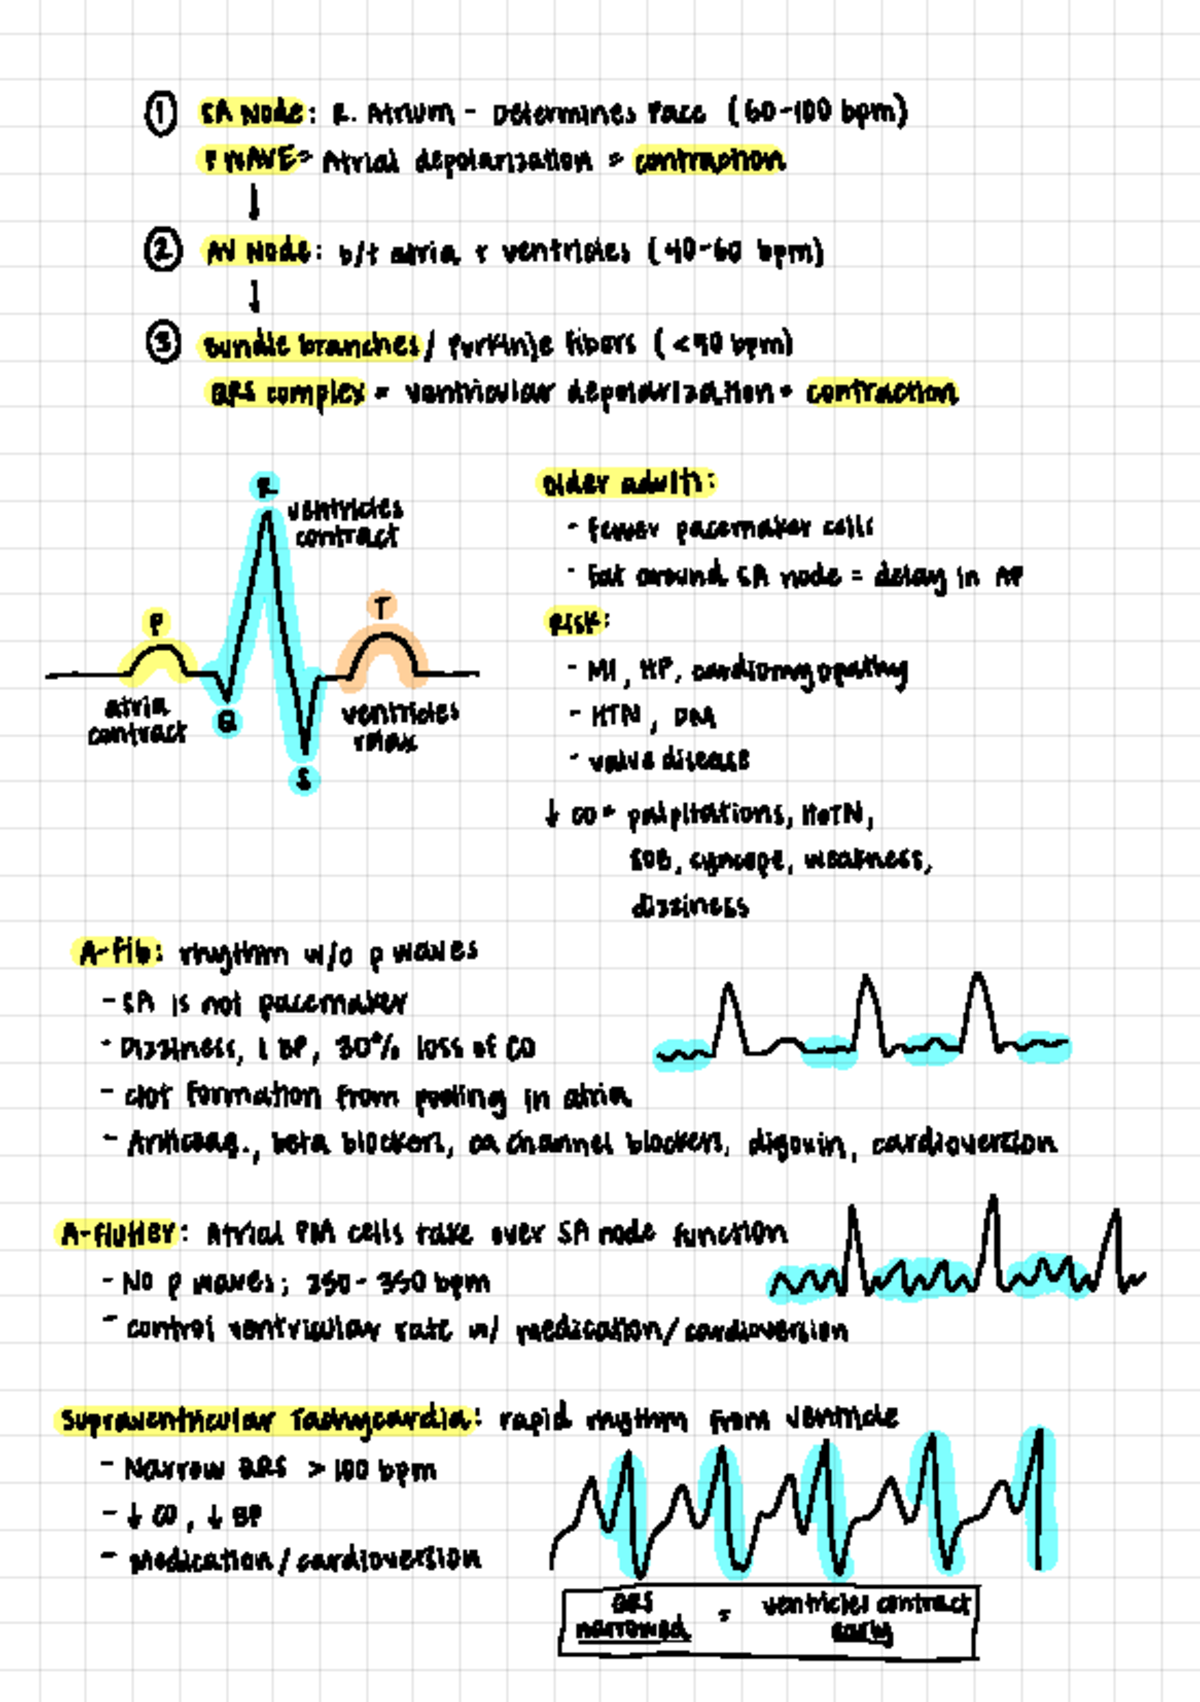 ① SA Node: R. Atrium - Determines Pace (60-100 bpm)
P WAVE = Atrial depolarization = contraction
↓
② AV Node: b/t atria + ventricles (40-60 bpm)
↓
③ Bundle branches/ Purkinje fibers (<40 bpm)
QRS complex = ventricular depolarization = contraction
R
ventricles
contract
P
T
atria
contract
Q
ventricles
relax
S
Older adults:
- Fewer pacemaker cells
- Fat around SA node = delay in AP
Risk:
- MI, HF, cardiomyopathy
- HTN, DM
- valve disease
↓ CO = palpitations, HoTN,
SOB, syncope, weakness,
dizziness
A-fib: rhythm w/o p waves
- SA is not pacemaker
- Dizziness, ↓ BP, 30% loss of CO
- clot formation from pooling in atria
- Anticoag., beta blockers, ca channel blockers, digoxin, cardioversion
A-flutter: Atrial PM cells take over SA node function
- No p waves; 250-350 bpm
- control ventricular rate w/ medication/cardioversion
Supraventricular Tachycardia: rapid rhythm from ventricle
- Narrow QRS > 100 bpm
- ↓ CO, ↓ BP
- medication/cardioversion
QRS narrowed = ventricles contract early